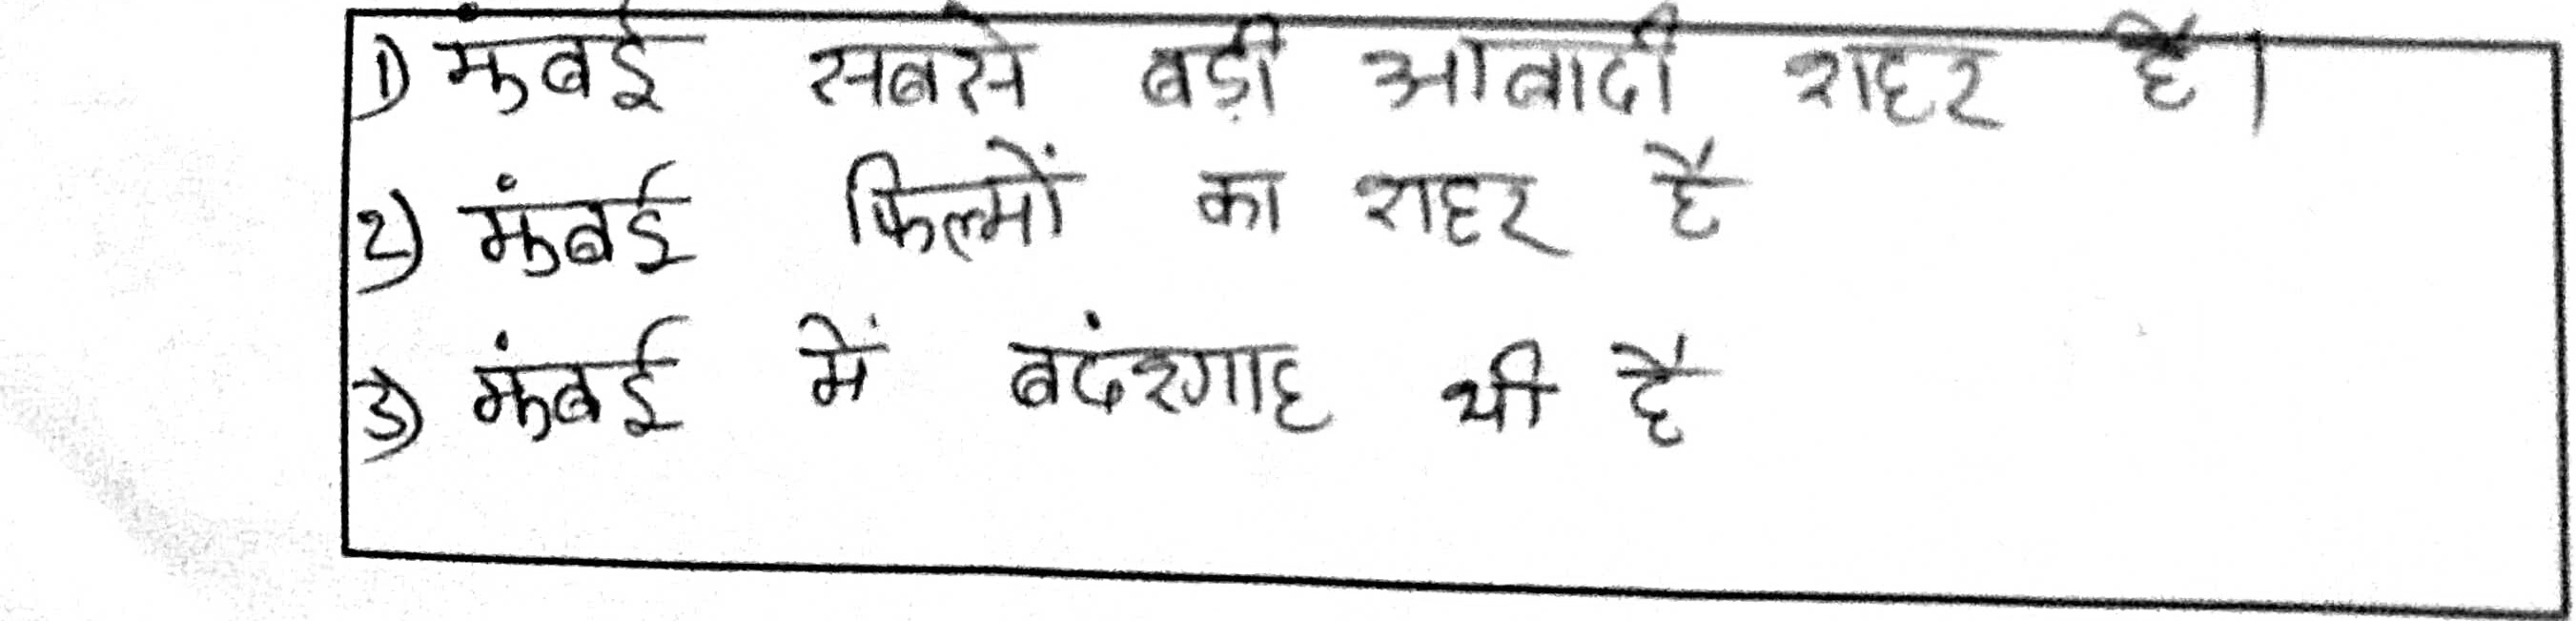 1) मुंबई सबसे बड़ी आबादी शहर है।
2) मुंबई फिल्मों का शहर है
3) मुंबई में बदंरगाह भी है